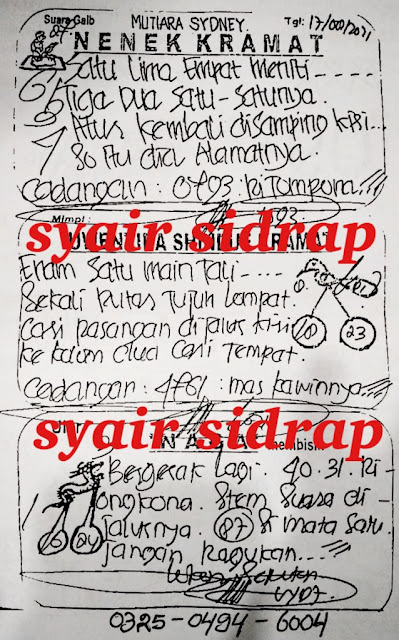 Suara Gaib MUTIARA SYDNEY. Tgl: 17/08/2021
NENEK KRAMAT
Satu Lima Empat Menti -----
Tiga Dua Satu-Satunya.
Atus Kembali disamping Kiri...
80 Itu dia Alamatnya.
Cadangan : 0793 : Ki Tompona
Mimpi :
syair sidrap
KRAMAT
Enam Satu main Tali ----
Sekali Putas Tujuh Lompat.
Cari pasangan di jalur Kiri
ke kolom dua Cari Tempat.
10 23
Cadangan : 4761 : mas kawinnya
syair sidrap
Bergerak Lagi. 40.31. Ki -
ongkona. Stem Suara di -
jalurnya. 87 8 mata Satu.
jangan Ragukan...
0325-0494-6004